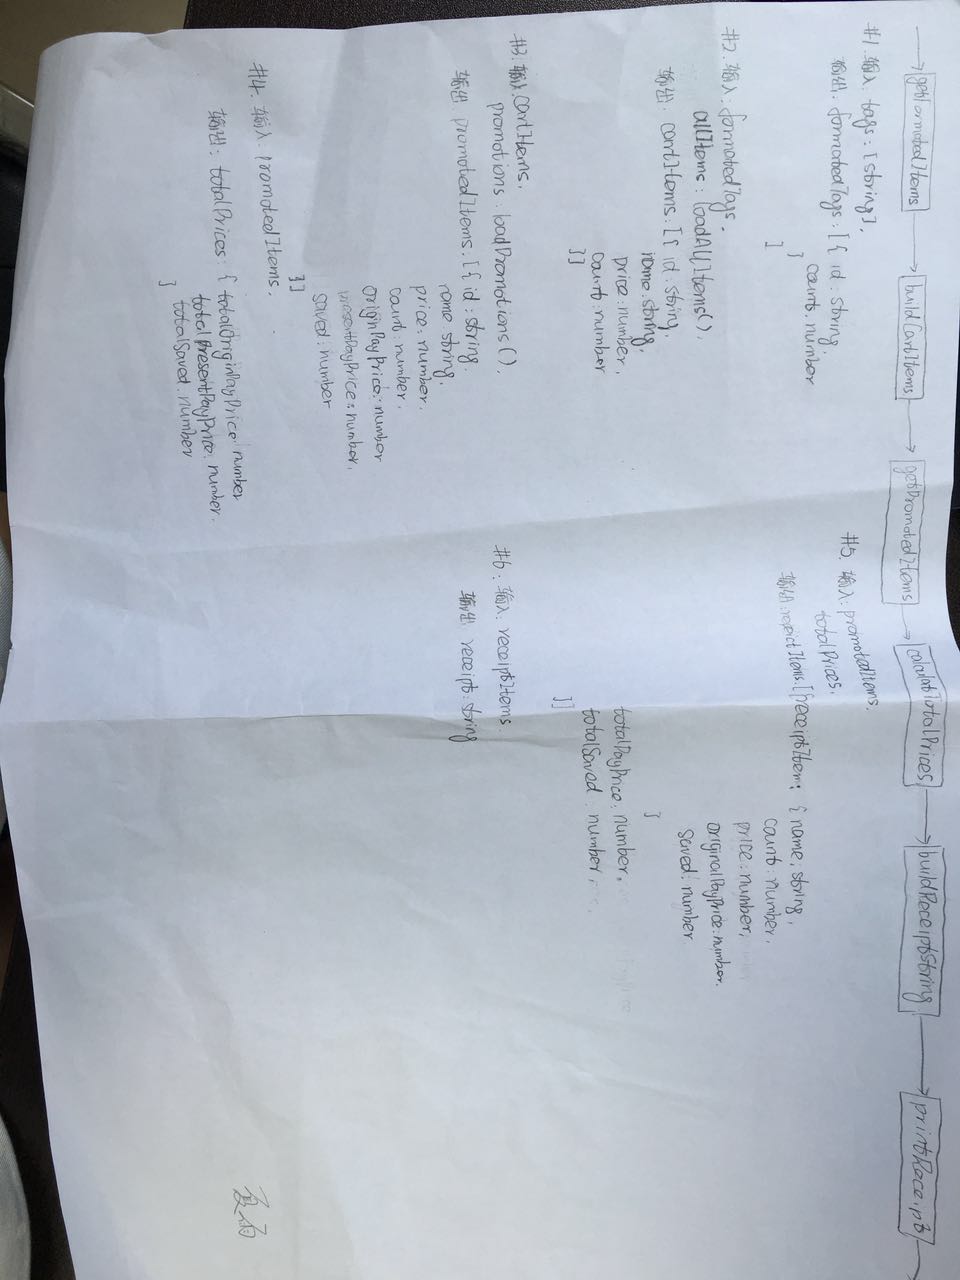 → getFormatedItems → buildCartItems → getPromotedItems → calculatTotalPrices → buildReceiptString → printReceipt →
#1. 输入: tags: [string],
输出: formatedTags: [{ id: string,
count: number
}
]
#2. 输入: formatedTags,
allItems: loadAllItems(),
输出: cartItems: [{ id: string,
name: string,
price: number,
count: number
}]
#3. 输入: cartItems,
promotions: loadPromotions(),
输出: promotedItems: [{ id: string,
name: string,
price: number,
count: number,
originPayPrice: number
presentPayPrice: number,
saved: number
}]
#4. 输入: promotedItems,
输出: totalPrices: { totalOriginPayPrice: number
totalPresentPayPrice: number,
totalSaved: number
}
#5. 输入: promotedItems,
totalPrices,
输出: receiptItems: [{receiptItem: { name: string,
count: number,
price: number,
originalPayPrice: number,
saved: number
}
totalPayPrice: number,
totalSaved: number,
}]
#6: 输入: receiptItems
输出: receipt: string
夏雨